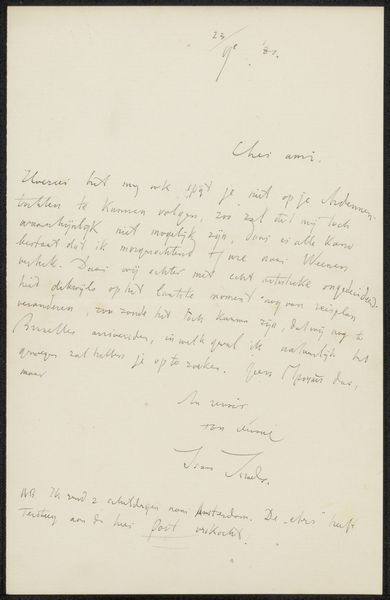 Cher ami.
Hoezeer het my ook spijt je niet op je Ardennen-
tochten te kunnen volgen, zoo zal dit my toch
waarschijnlijk niet mogelijk zijn, daar er alle kans
bestaat dat ik morgenochtend 7 ure naar Weenen
vertrek. Daar wij echter met echt artistieke ongedecideerd-
heid dikwijls op het laatste moment nog van reisplan
veranderen, zou het toch kunnen zijn, dat wij nog te
Bruxelles arriveerden, in welk geval ik natuurlijk het
genoegen zal hebben je op te zoeken. Geen
maar
Au revoir
ton dévoué
NB Ik zend 2 schilderijen naar Amsterdam. De heeft
Tersteeg aan de heer Post verkocht.